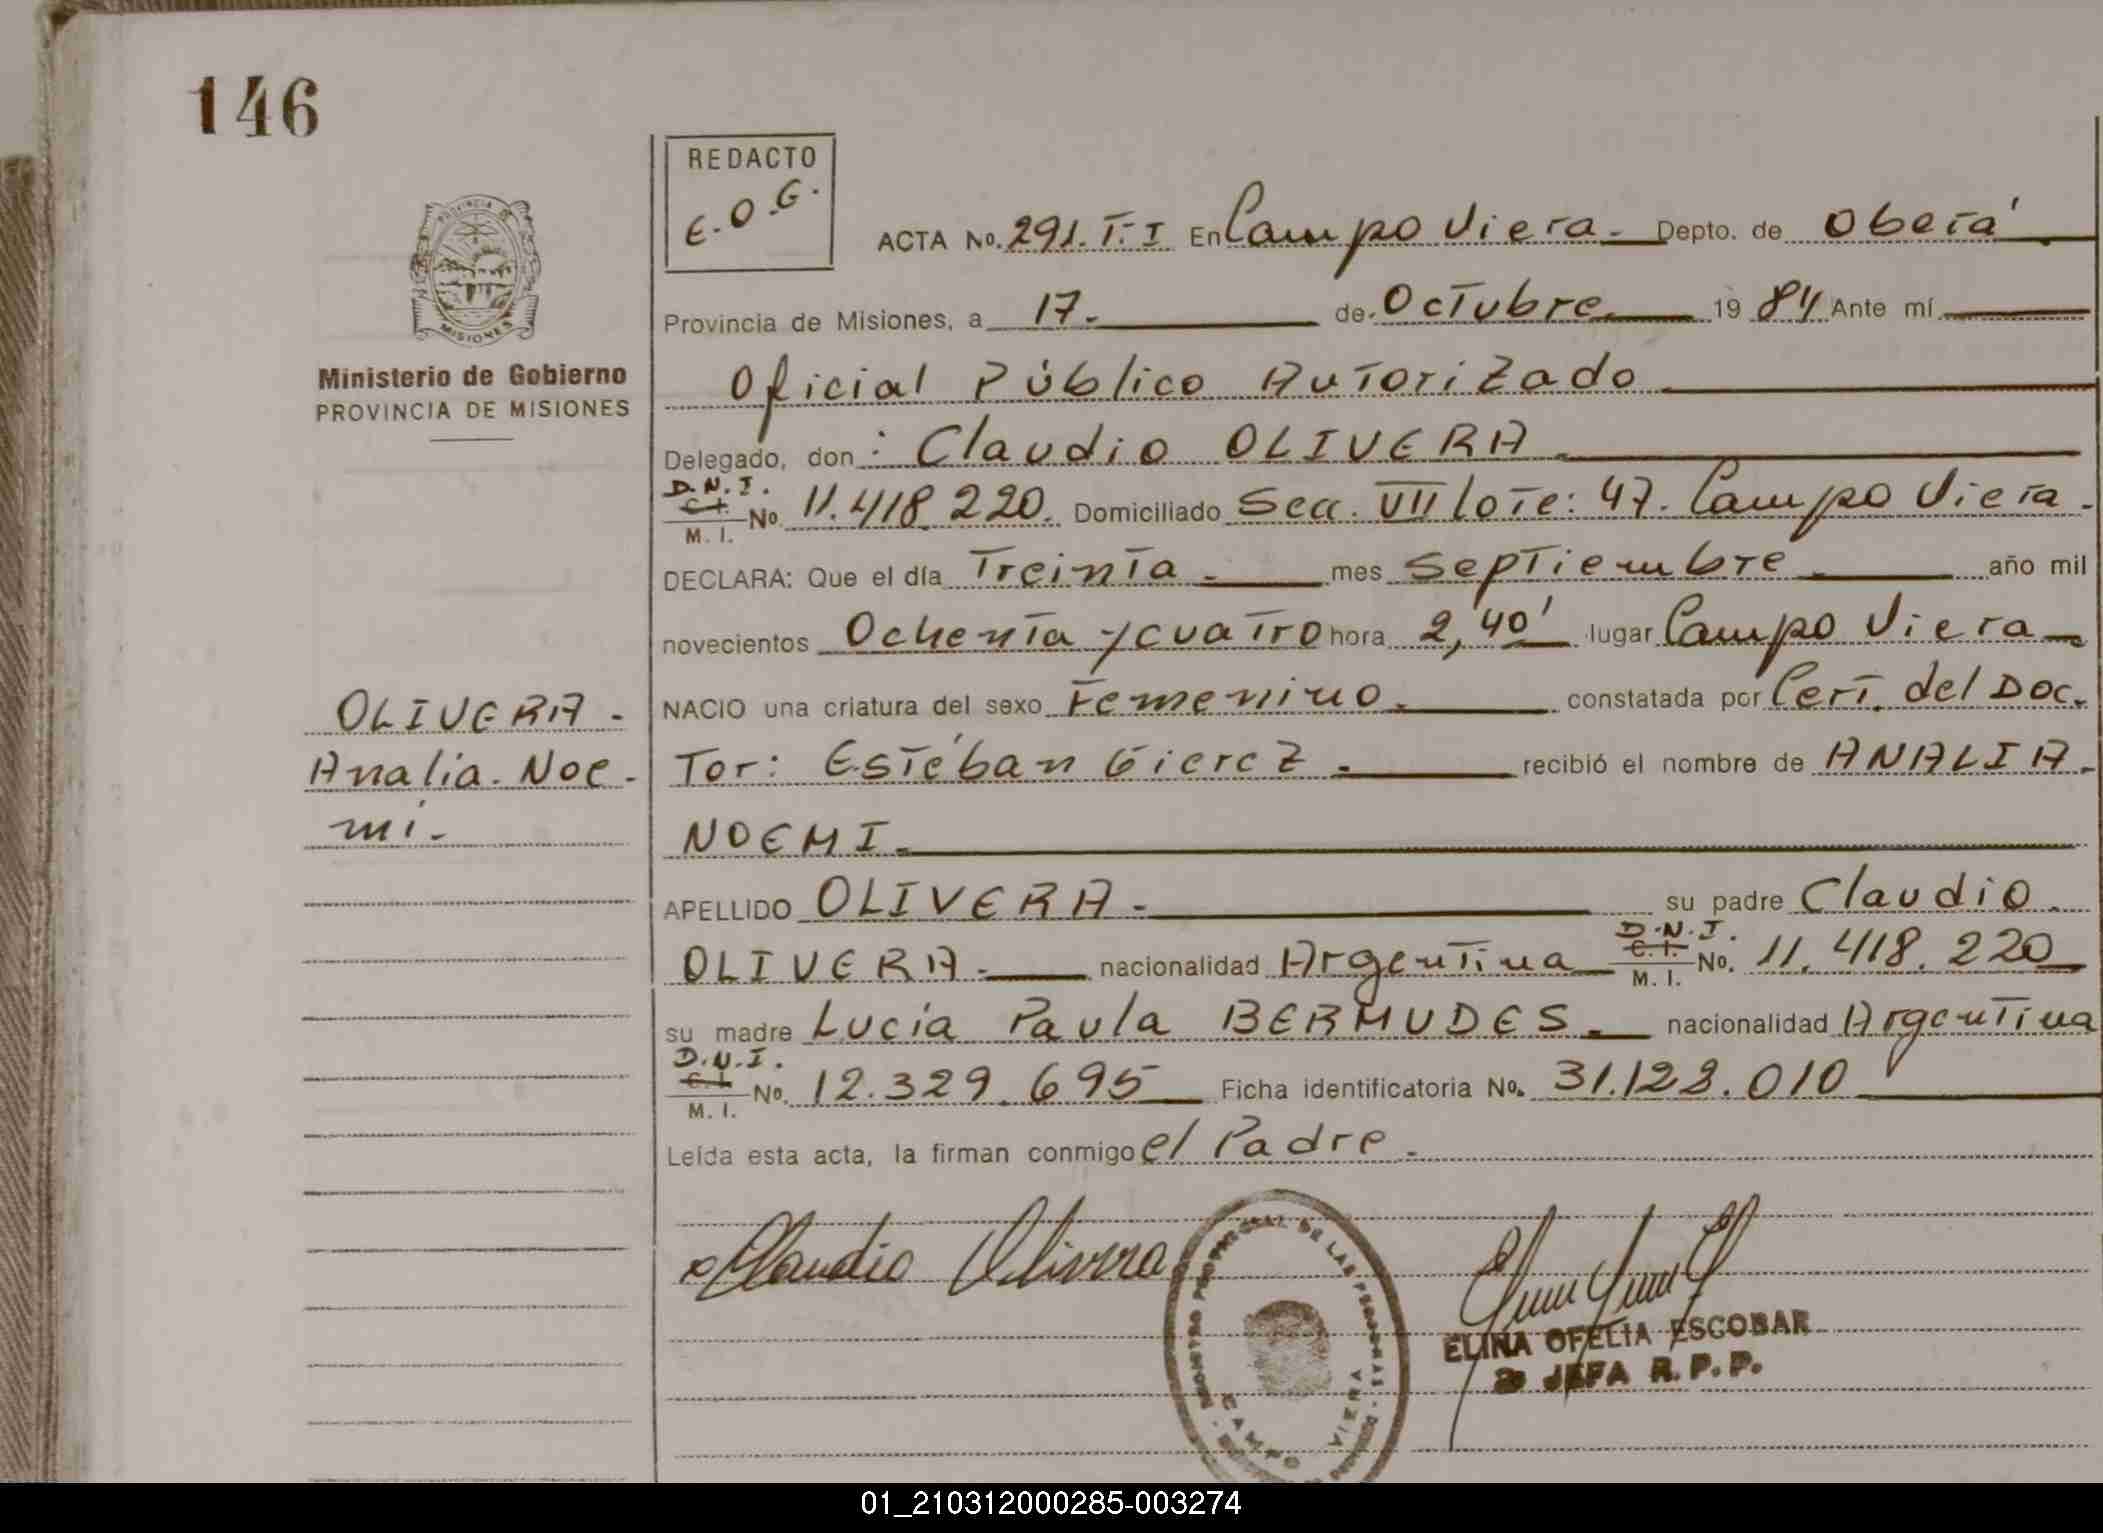 146
REDACTO
E.O.G.
PROVINCIA DE
MISIONES
Ministerio de Gobierno
PROVINCIA DE MISIONES
OLIVERA.
Analia. Noe-
mi.
ACTA No. 291. T: I En Campo Viera. Depto. de Oberá
Provincia de Misiones, a 17. de Octubre. 1984 Ante mí
Oficial Público Autorizado
Delegado, don: Claudio OLIVERA.
D.N.I.
C.I.
M. I. No. 11.418.220. Domiciliado Secc. VII lote: 47. Campo Viera.
DECLARA: Que el día Treinta. mes Septiembre. año mil
novecientos Ochenta y cuatro hora 2,40' lugar Campo Viera
NACIO una criatura del sexo Femenino. constatada por Cert. del Doc.
Tor: Estéban Gierez. recibió el nombre de ANALIA.
NOEMI.
APELLIDO OLIVERA. su padre Claudio.
OLIVERA. nacionalidad Argentina D.N.I.
C.I.
M. I. No. 11.418.220
su madre Lucía Paula BERMUDES. nacionalidad Argentina
D.N.I.
C.I.
M. I. No. 12.329.695 Ficha identificatoria No. 31.123.010
Leída esta acta, la firman conmigo el Padre.
Claudio Olivera
REGISTRO PROVINCIAL DE LAS PERSONAS
CAMPO VIERA
ELINA OFELIA ESCOBAR
JEFA R.P.P.
01_210312000285-003274